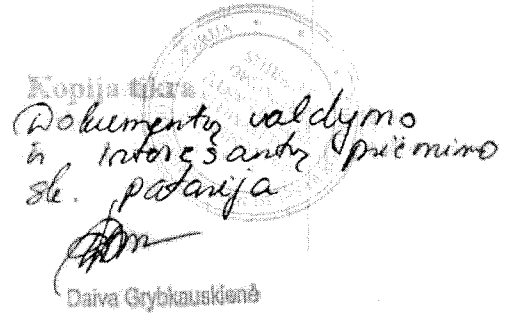 Kopija tikra
Dokumentų valdymo
ir interesantų priėmimo
sk. patarėja
Daiva Grybkauskienė